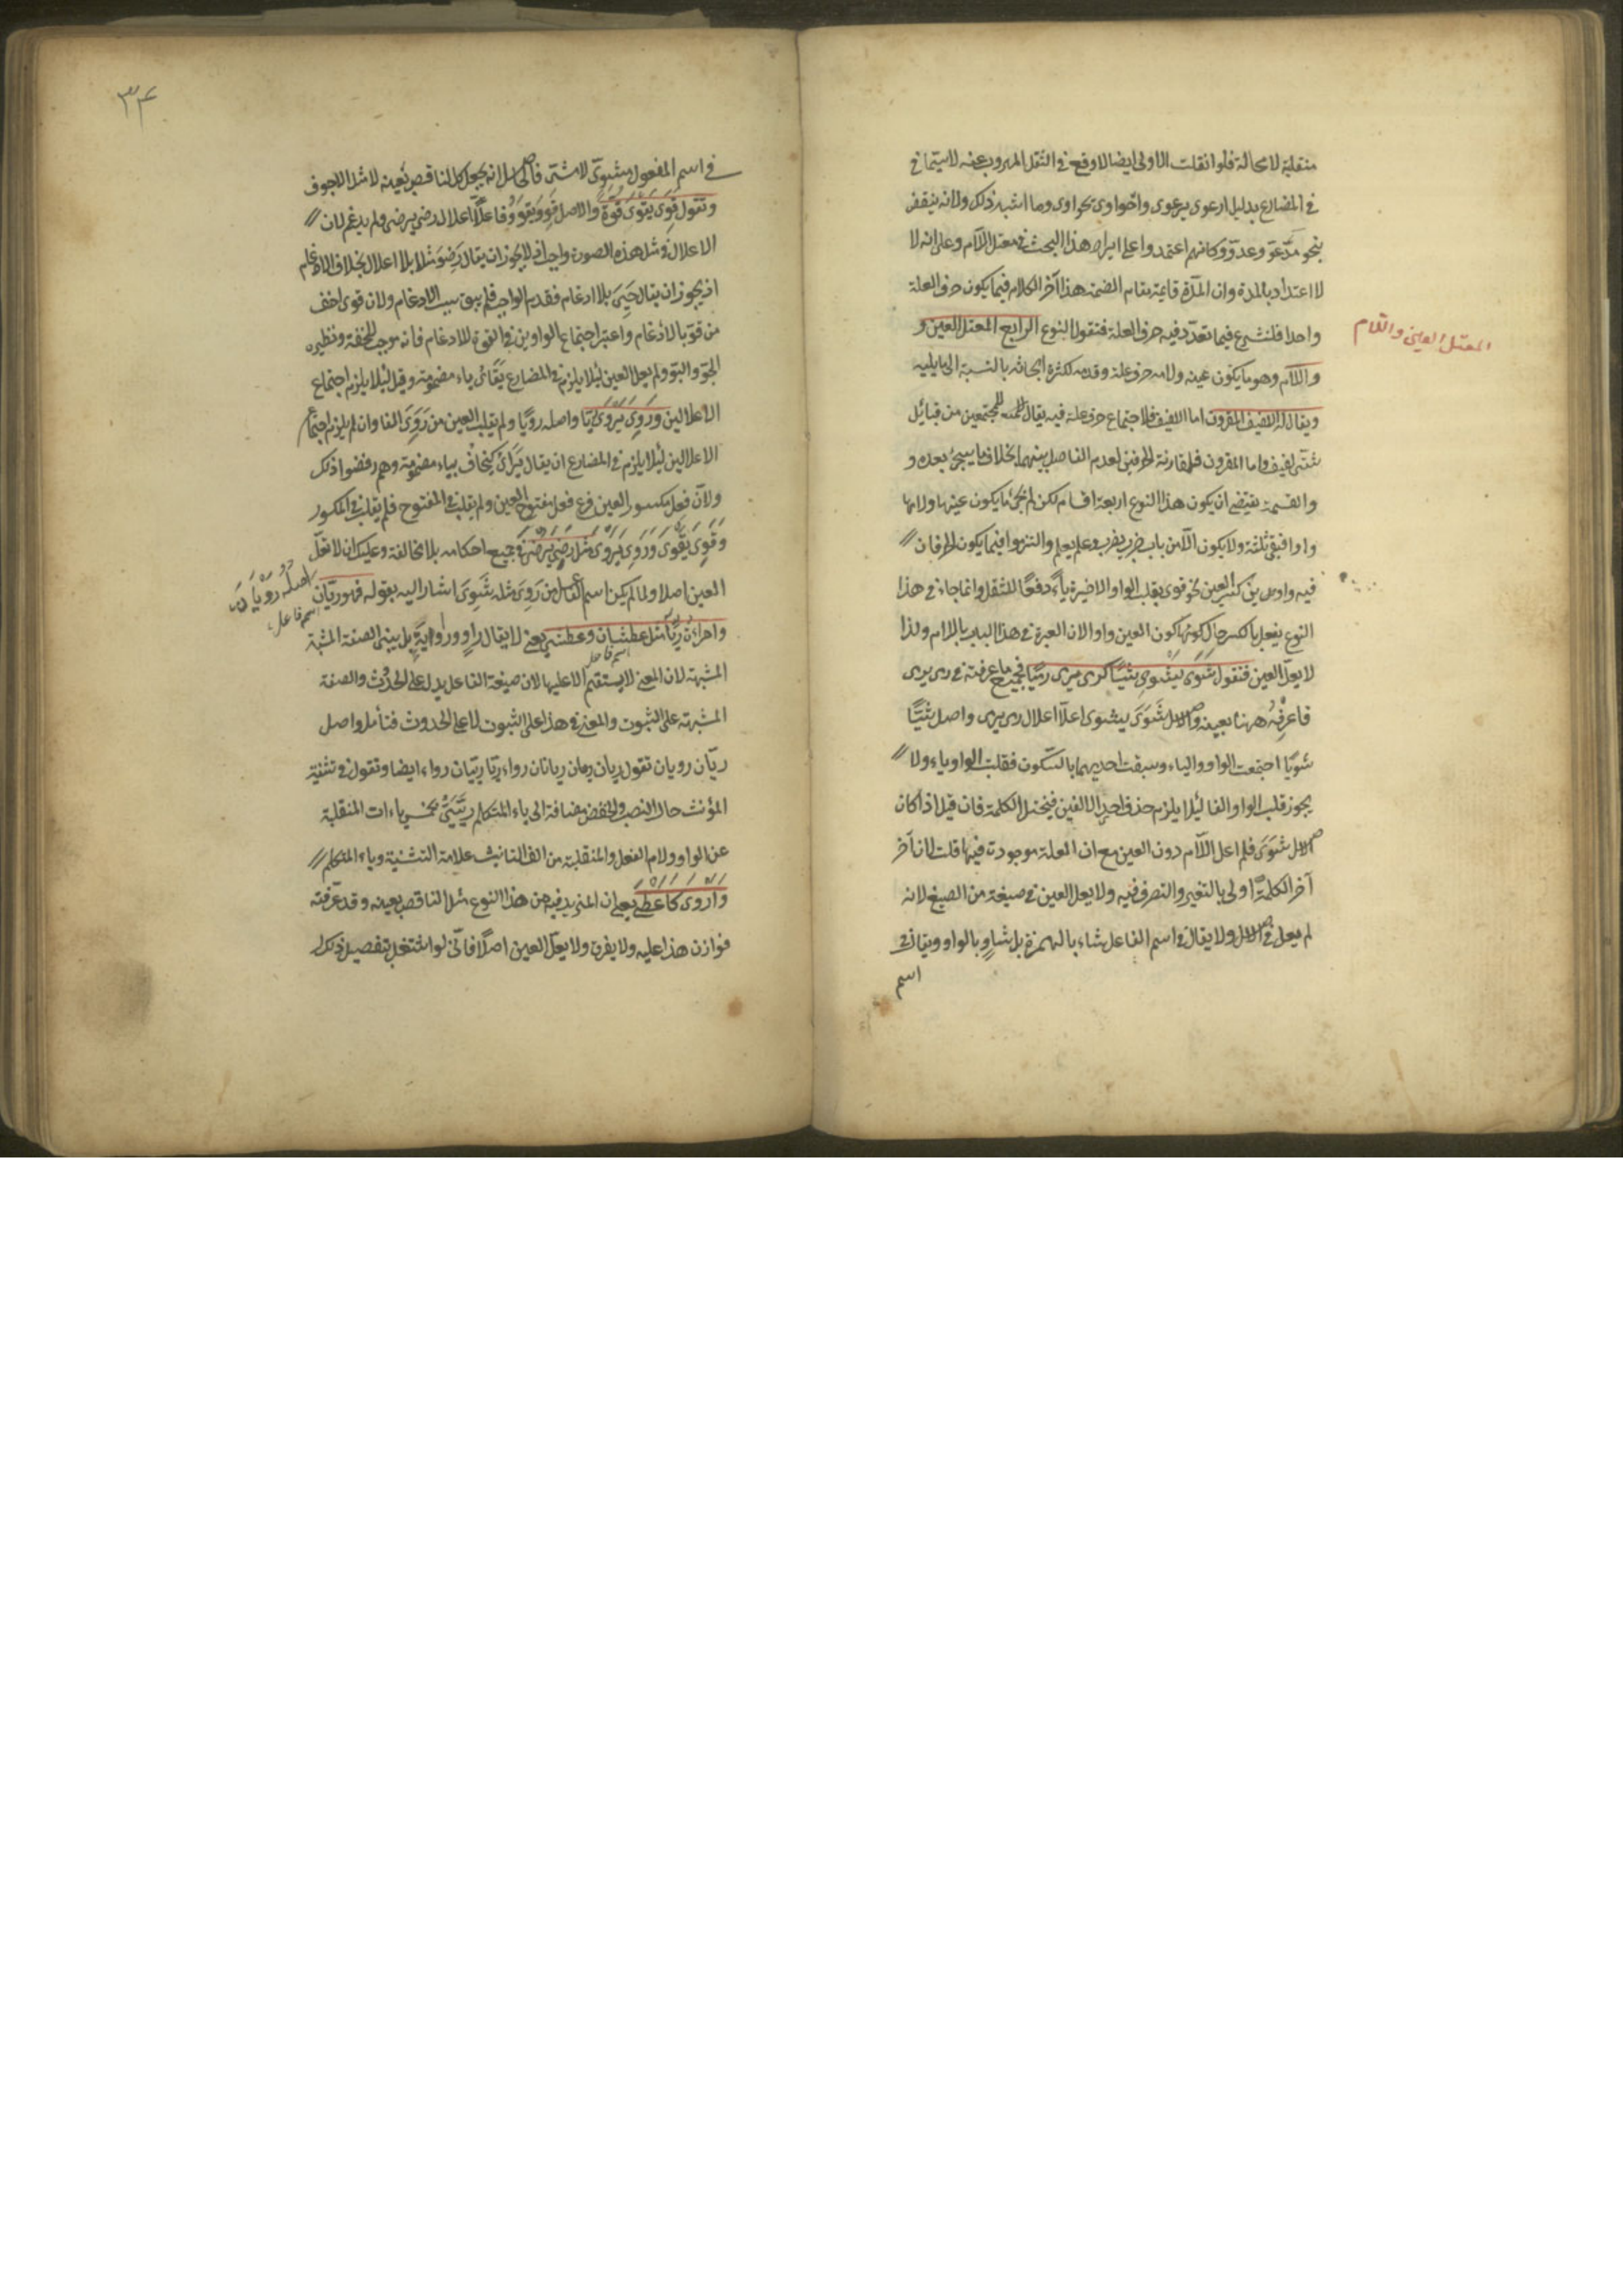 منقلبة لا محالة فلو انقلبت الاولى ايضا لاوقع في الثقل المهروب عنه لا سيما في
في المضارع بدليل ارعوى يرعوى واحواوى يحواوى وما اشبه ذلك ولانه ينتقض
بنحو مدعوّ وعدوّ وكانهم اعتمدوا على ايراد هذا البحث في معتل اللام وعلى انه لا
لا اعتداد بالمدة وان المدّة قائمة مقام الضمة هذا آخر الكلام فيما يكون حرف العلة
واحدا فلنشرع فيما تعدّد فيه حرف العلة فنقول النوع الرابع المعتل العين و
المعتل العين واللام
واللام وهو ما يكون عينه ولامه حرف علة وقدمه لكثرة ابحاثه بالنسبة الى ما يليه
ويقال له اللفيف المقرون اما اللفيف فلاجتماع حرفي علة فيه يقال للمجتمعين من قبائل
شتى لفيف واما المقرون فلمقارنة الحرفين لعدم الفاصل بينهما بخلاف ما يجيء بعده و
والقسمة يقتضى ان يكون هذا النوع اربعة اقسام لكن لم يجئ ما يكون عينها ولامها
واوا فبقى ثلثة ولا يكون الا من باب ضرب يضرب وعلم يعلم والتزموا فيما يكون الحرفان
فيه واوين كسر العين نحو قوى بقلب الواو الاخيرة ياء دفعًا للثقل وانما جاء في هذا
النوع يفعل بالكسر حال كونها كون العين واوا لان العبرة في هذا الباب باللام ولذا
لا يعلّ العين فتقول شَوَى يَشْوِى شَيًّا كرمى يرمى رميًا فجميع ما عرفته في رمى يرمى
فاعرفه ههنا بعينه والاصل شَوَىَ يشوى اعلّا اعلال رمى يرمى واصل شَيًّا
شويًا اجتمعت الواو والياء وسبقت احديهما بالسكون فقلبت الواو ياء ولا
يجوز قلب الواو الفا لئلا يلزم حذف احدى الالفين فيختل الكلمة فان قيل اذا كان
الاصل شَوَىَ فلم اعلّ اللام دون العين مع ان العلة موجودة فيها قلت لان آخر
آخر الكلمة اولى بالتغير والتصرف فيه ولا يعل العين في صيغة من الصيغ لانه
لم يعل في الاصل ولا يقال في اسم الفاعل شاء بالهمزة بل شاوٍ بالواو ويقال في
اسم
۳۴
في اسم المفعول مشوىّ لا مشتى فالحاصل انه يجعل كالناقص بعينه لا مثل الاجوف
وتقول قَوِىَ يَقْوَى قُوَّةً والاصل قَوِوَ يَقْوَوُ فاعلّا اعلال رضى يرضى ولم يدغم لان
الاعلال في مثل هذه الصورة واجب اذ لا يجوز ان يقال رَضِوَ مثلا بلا اعلال بخلاف الادغام
اذ يجوز ان يقال حَيِىَ بلا ادغام فقدم الواجب فلم يبق سبب الادغام ولان قوى اخف
من قوّ بالادغام واعتبر اجتماع الواوين في القوة للادغام فانه موجب للخفة ونظيره
الجوّ والبوّ ولم يعل العين لئلا يلزم في المضارع يَقَائُ ياء مضمومة وقيل لئلا يلزم اجتماع
الاعلالين ورَوِىَ يَرْوَى رَيًّا واصله رويًا ولم يقلب العين من رَوِىَ الفا وان لم يلزم اجتماع
الاعلالين لئلا يلزم في المضارع ان يقال يَرَائُ كيخاف بياء مضمومة وهم رفضوا ذلك
ولان فعل مكسور العين فرع فعل مفتوح العين ولم يقلب في المفتوح فلم يقلب في المكسور
وقَوِىَ يَقْوَى ورَوِىَ يَرْوَى مثل رَضِىَ يَرْضَى في جميع احكامه بلا مخالفة وعليك ان لا تعلّ
العين اصلا ولما لم يكن اسم الفاعل من رَوِىَ مثله شَوَىَ اشار اليه بقوله فهو ريّان
اصله رويان
اسم فاعل
وامراة رَيّا مثل عطشان وعطشى يعنى لا يقال راوٍ وراوية بل يبنى الصفة المشبة
اسم فاعل
المشبهة لان المعنى لا يستقيم الا عليها لان صيغة الفاعل يدل على الحدوث والصفة
المشبهة على الثبوت والمعنى في هذا على الثبوت لا على الحدوث فتأمل واصل
ريّان رويان تقول ريان ريان ريانان رواء ريّا ريّيان رواء ايضا وتقول في تثنية
المؤنث حال النصب والخفض مضافة الى ياء المتكلم رَيَّيَىَّ بخمس ياءات المنقلبة
عن الواو ولام الفعل والمنقلبة من الف التانيث علامة التثنية وياء المتكلم
واَرْوَى كاعطى يعنى ان المزيد فيه من هذا النوع مثل الناقص بعينه وقد عرّفته
فوازن هذا عليه ولا يفرق ولا يعلّ العين اصلًا فانّى لو اشتغل بتفصيل ذلك